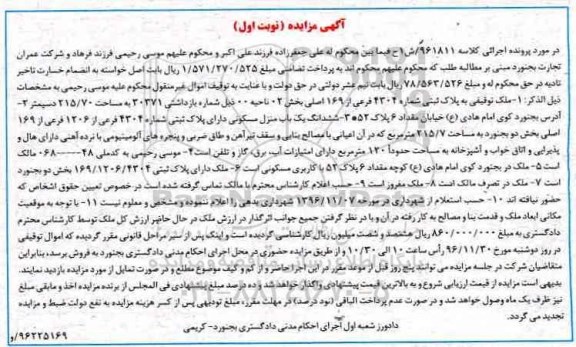 آگهی مزایده (نوبت اول)
در مورد پرونده اجرائی کلاسه ۹۶۱۸۱۱/ش۱ج فیما بین محکوم له علی جعفرزاده فرزند علی اکبر و محکوم علیهم موسی رحیمی فرزند فرهاد و شرکت عمران
تجارت بجنورد مبنی بر مطالبه طلب که محکوم علیهم محکوم اند به پرداخت تضامنی مبلغ ۱/۵۷۱/۲۷۰/۵۳۵ ریال بابت اصل خواسته به انضمام خسارت تاخیر
تادیه در حق محکوم له و مبلغ ۷۸/۵۶۳/۵۲۶ ریال بابت نیم عشر دولتی در حق دولت و با عنایت به توقیف اموال غیرمنقول محکوم علیه موسی رحیمی به مشخصات
ذیل الذکر: ۱-ملک توقیفی به پلاک ثبتی شماره ۴۳۰۴ فرعی از ۱۶۹ اصلی بخش ۰۲ ناحیه ۰۰ ذیل شماره بازداشتی ۳۰۳۷۱ به مساحت ۲۱۵/۷۰ دسیمتر ۲-
آدرس بجنورد کوی امام هادی (ع) خیابان مقداد ۶ پلاک ۵۲ ۳-ششدانگ یک باب منزل مسکونی دارای پلاک ثبتی شماره ۴۳۰۴ فرعی از ۱۲۰۶ فرعی از ۱۶۹
اصلی بخش دو بجنورد به مساحت ۲۱۵/۷ مترمربع که در آن اعیانی با مصالح بنایی و سقف تیرآهن و طاق ضربی و پنجره های آلومینیومی با نرده آهنی دارای هال و
پذیرایی و اتاق خواب و آشپزخانه به مساحت حدوداً ۱۲۰ مترمربع دارای امتیازات آب، برق، گاز و تلفن است ۴- موسی رحیمی به کدملی ۰۶۸------۴۸ مالک
است ۵- ملک در بجنورد کوی امام هادی (ع) کوچه مقداد ۶ پلاک ۵۲ با کاربری مسکونی است ۶- ملک دارای پلاک ثبتی ۱۶۹/۱۲۰۶/۴۳۰۴ بخش دو بجنورد
است ۷- ملک در تصرف مالک است ۸- ملک مفروز است ۹- حسب اعلام کارشناس محترم با مالک تماس گرفته شده است در خصوص تعیین حقوق اشخاص که
حضور نیافته اند ۱۰- حسب استعلام از شهرداری در مورخه ۱۳۹۶/۱۱/۰۷ شهرداری بدهی را اعلام ننموده و مشخص و معلوم نیست ۱۱- با توجه به موقعیت
مکانی ابعاد ملک و قدمت بنا و مصالح به کار رفته در آن و با در نظر گرفتن جمیع جوانب اثرگذار در ارزش ملک در حال حاضر ارزش کل ملک توسط کارشناس محترم
دادگستری به مبلغ ۸۶۰/۰۰۰/۰۰۰ ریال هشتصد و شصت میلیون ریال کارشناسی گردیده است و اینک پس از سیر مراحل قانونی مقرر گردیده که اموال توقیفی
در روز دوشنبه مورخ ۹۶/۱۱/۳۰ رأس ساعت ۱۰ الی ۱۰/۳۰ و از طریق مزایده حضوری در محل اجرای احکام مدنی دادگستری بجنورد به فروش برسد، بنابراین
متقاضیان شرکت در جلسه مزایده می توانند پنج روز قبل از موعد مقرر در این اجرا حاضر و از کم و کیف موضوع مطلع و در صورت تمایل از مورد مزایده بازدید نمایند.
بدیهی است مزایده از قیمت ارزیابی شروع و به بالاترین قیمت پیشنهادی واگذار خواهد شد و ده درصد مبلغ پیشنهادی فی المجلس از برنده مزایده اخذ و مابقی مبلغ
نیز ظرف یک ماه وصول خواهد شد و در صورت عدم پرداخت الباقی (نود درصد) در مهلت مقرر، مبلغ تودیعی پس از کسر هزینه مزایده به نفع دولت ضبط و مزایده
تجدید می گردد.
دادورز شعبه اول اجرای احکام مدنی دادگستری بجنورد- کریمی
۹۶۲۲۵۱۶۹/و